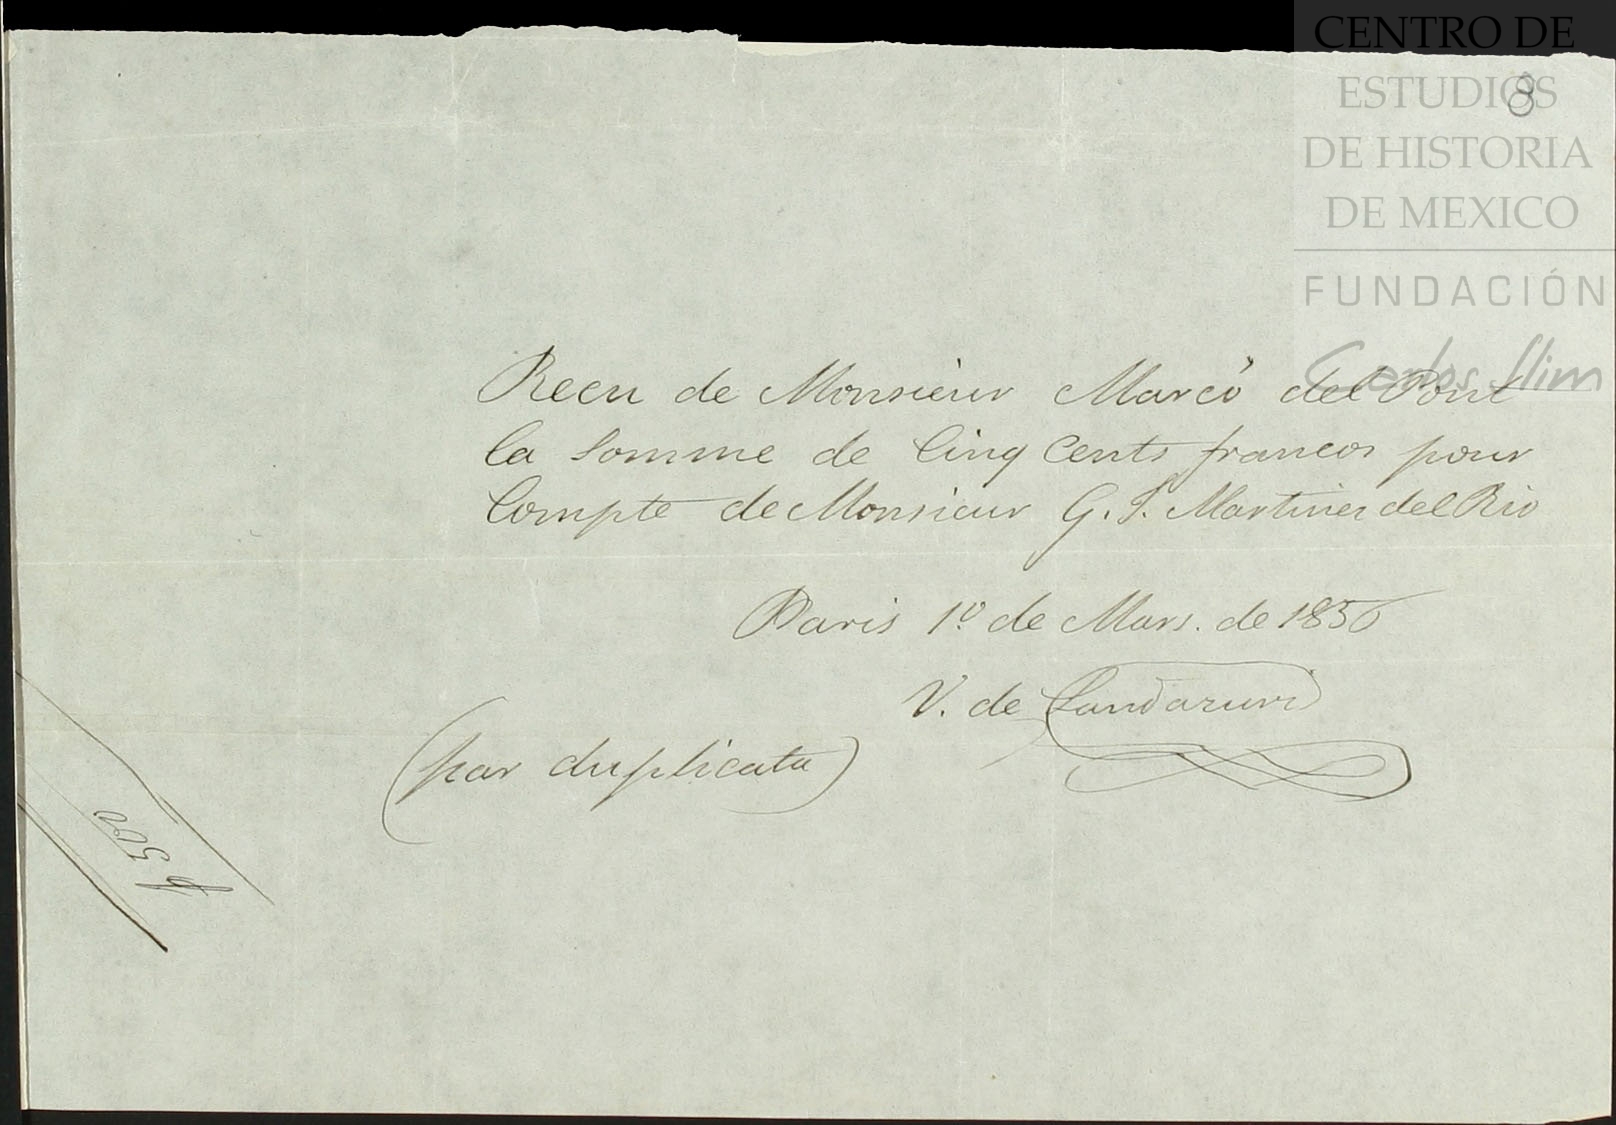 CENTRO DE
ESTUDIOS
DE HISTORIA
DE MEXICO
FUNDACIÓN
Carlos Slim
8
Recu de Monsieur Marcó del Pont
la Somme de Cinq Cents francos pour
Compte de Monsieur G. S. Martinez del Rio
Paris 1º de Mars. de 1856
V. de Landazuri
(par duplicata)
f 500